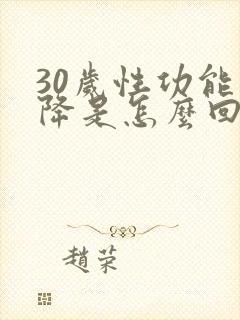 30歲性功能
降是怎麼回
趙荣